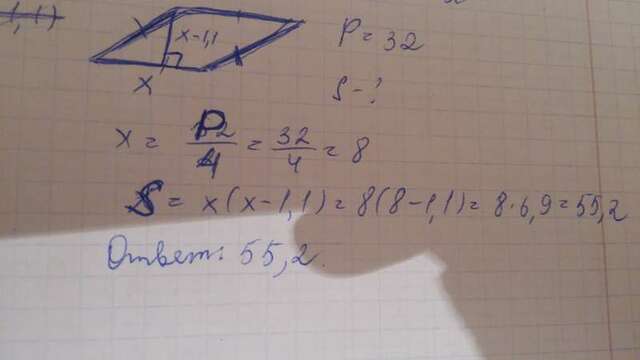 x-1,1 P = 32
x S - ?
x = P/4 = 32/4 = 8
S = x(x-1,1) = 8(8-1,1) = 8·6,9 = 55,2
Ответ: 55,2.